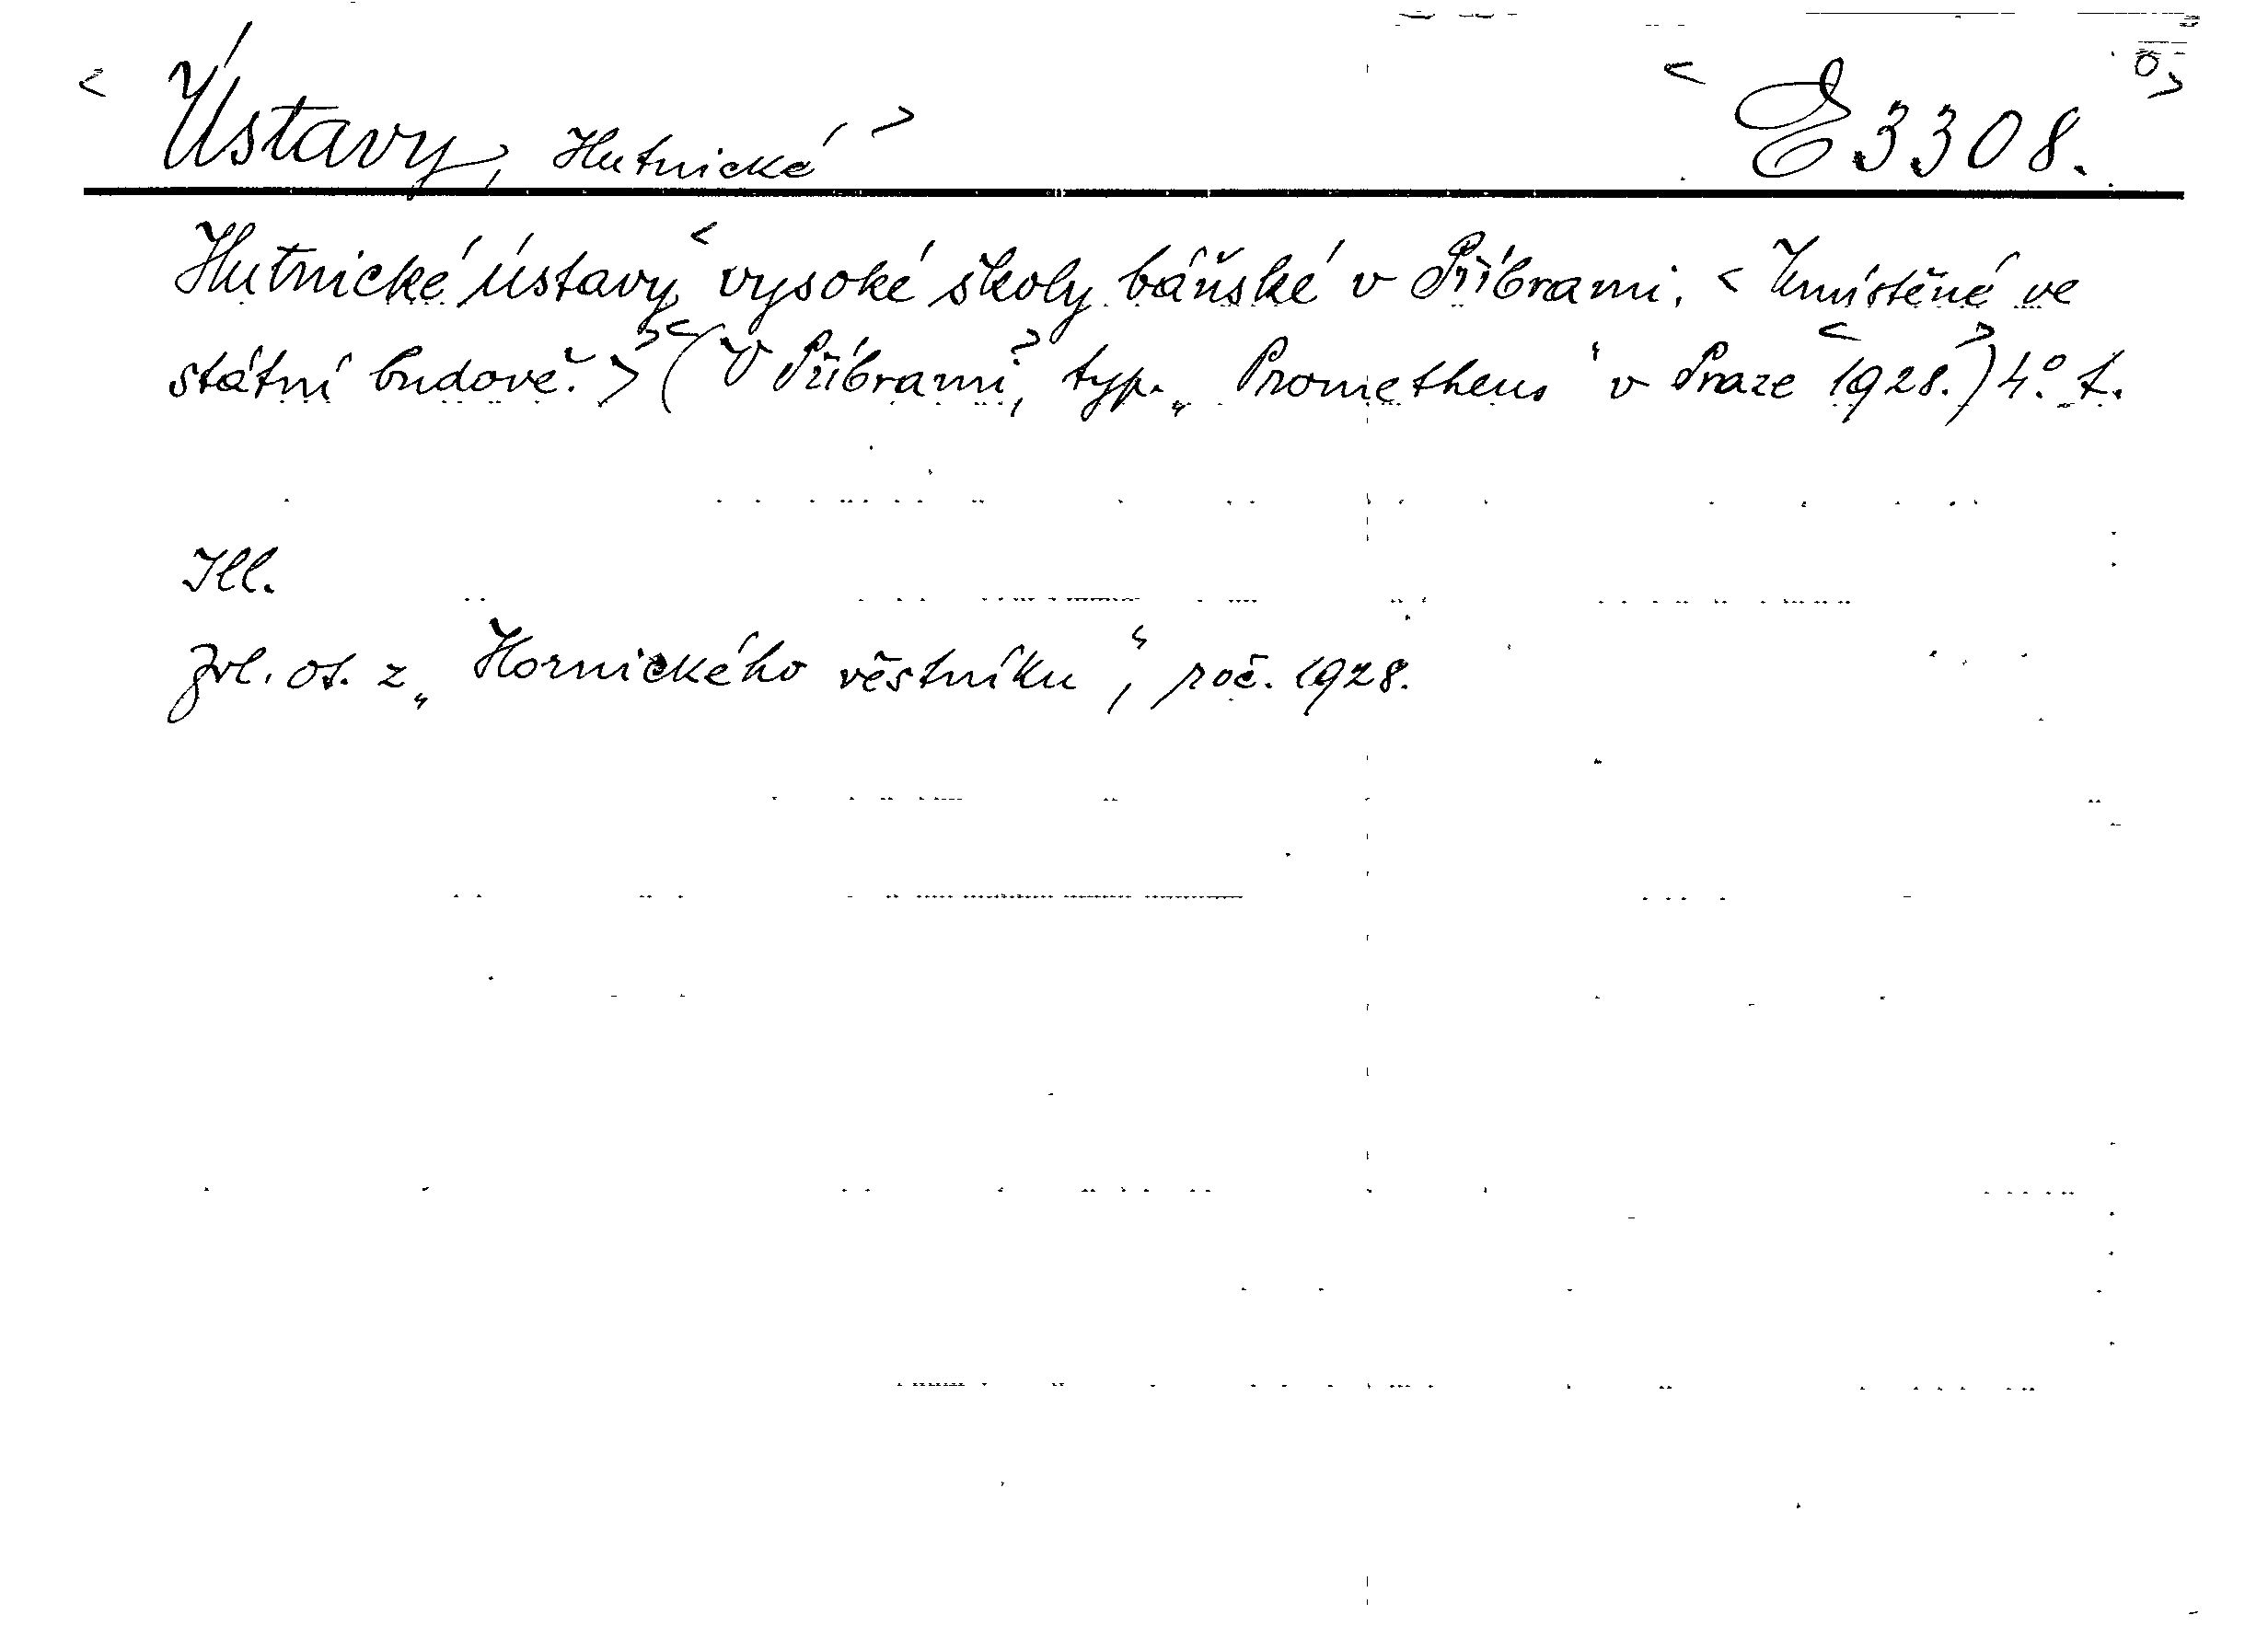 < Ústavy, Hutnické > < E 3308. >
Hutnické ústavy < vysoké školy báňské v Příbrami. < Umístěné ve
státní budově. > > < (V Příbrami >, typ. „Prometheus“ v Praze < 1928. >) 4°. f.
Ill.
Zvl. ot. z „Hornického věstníku“, roč. 1928.